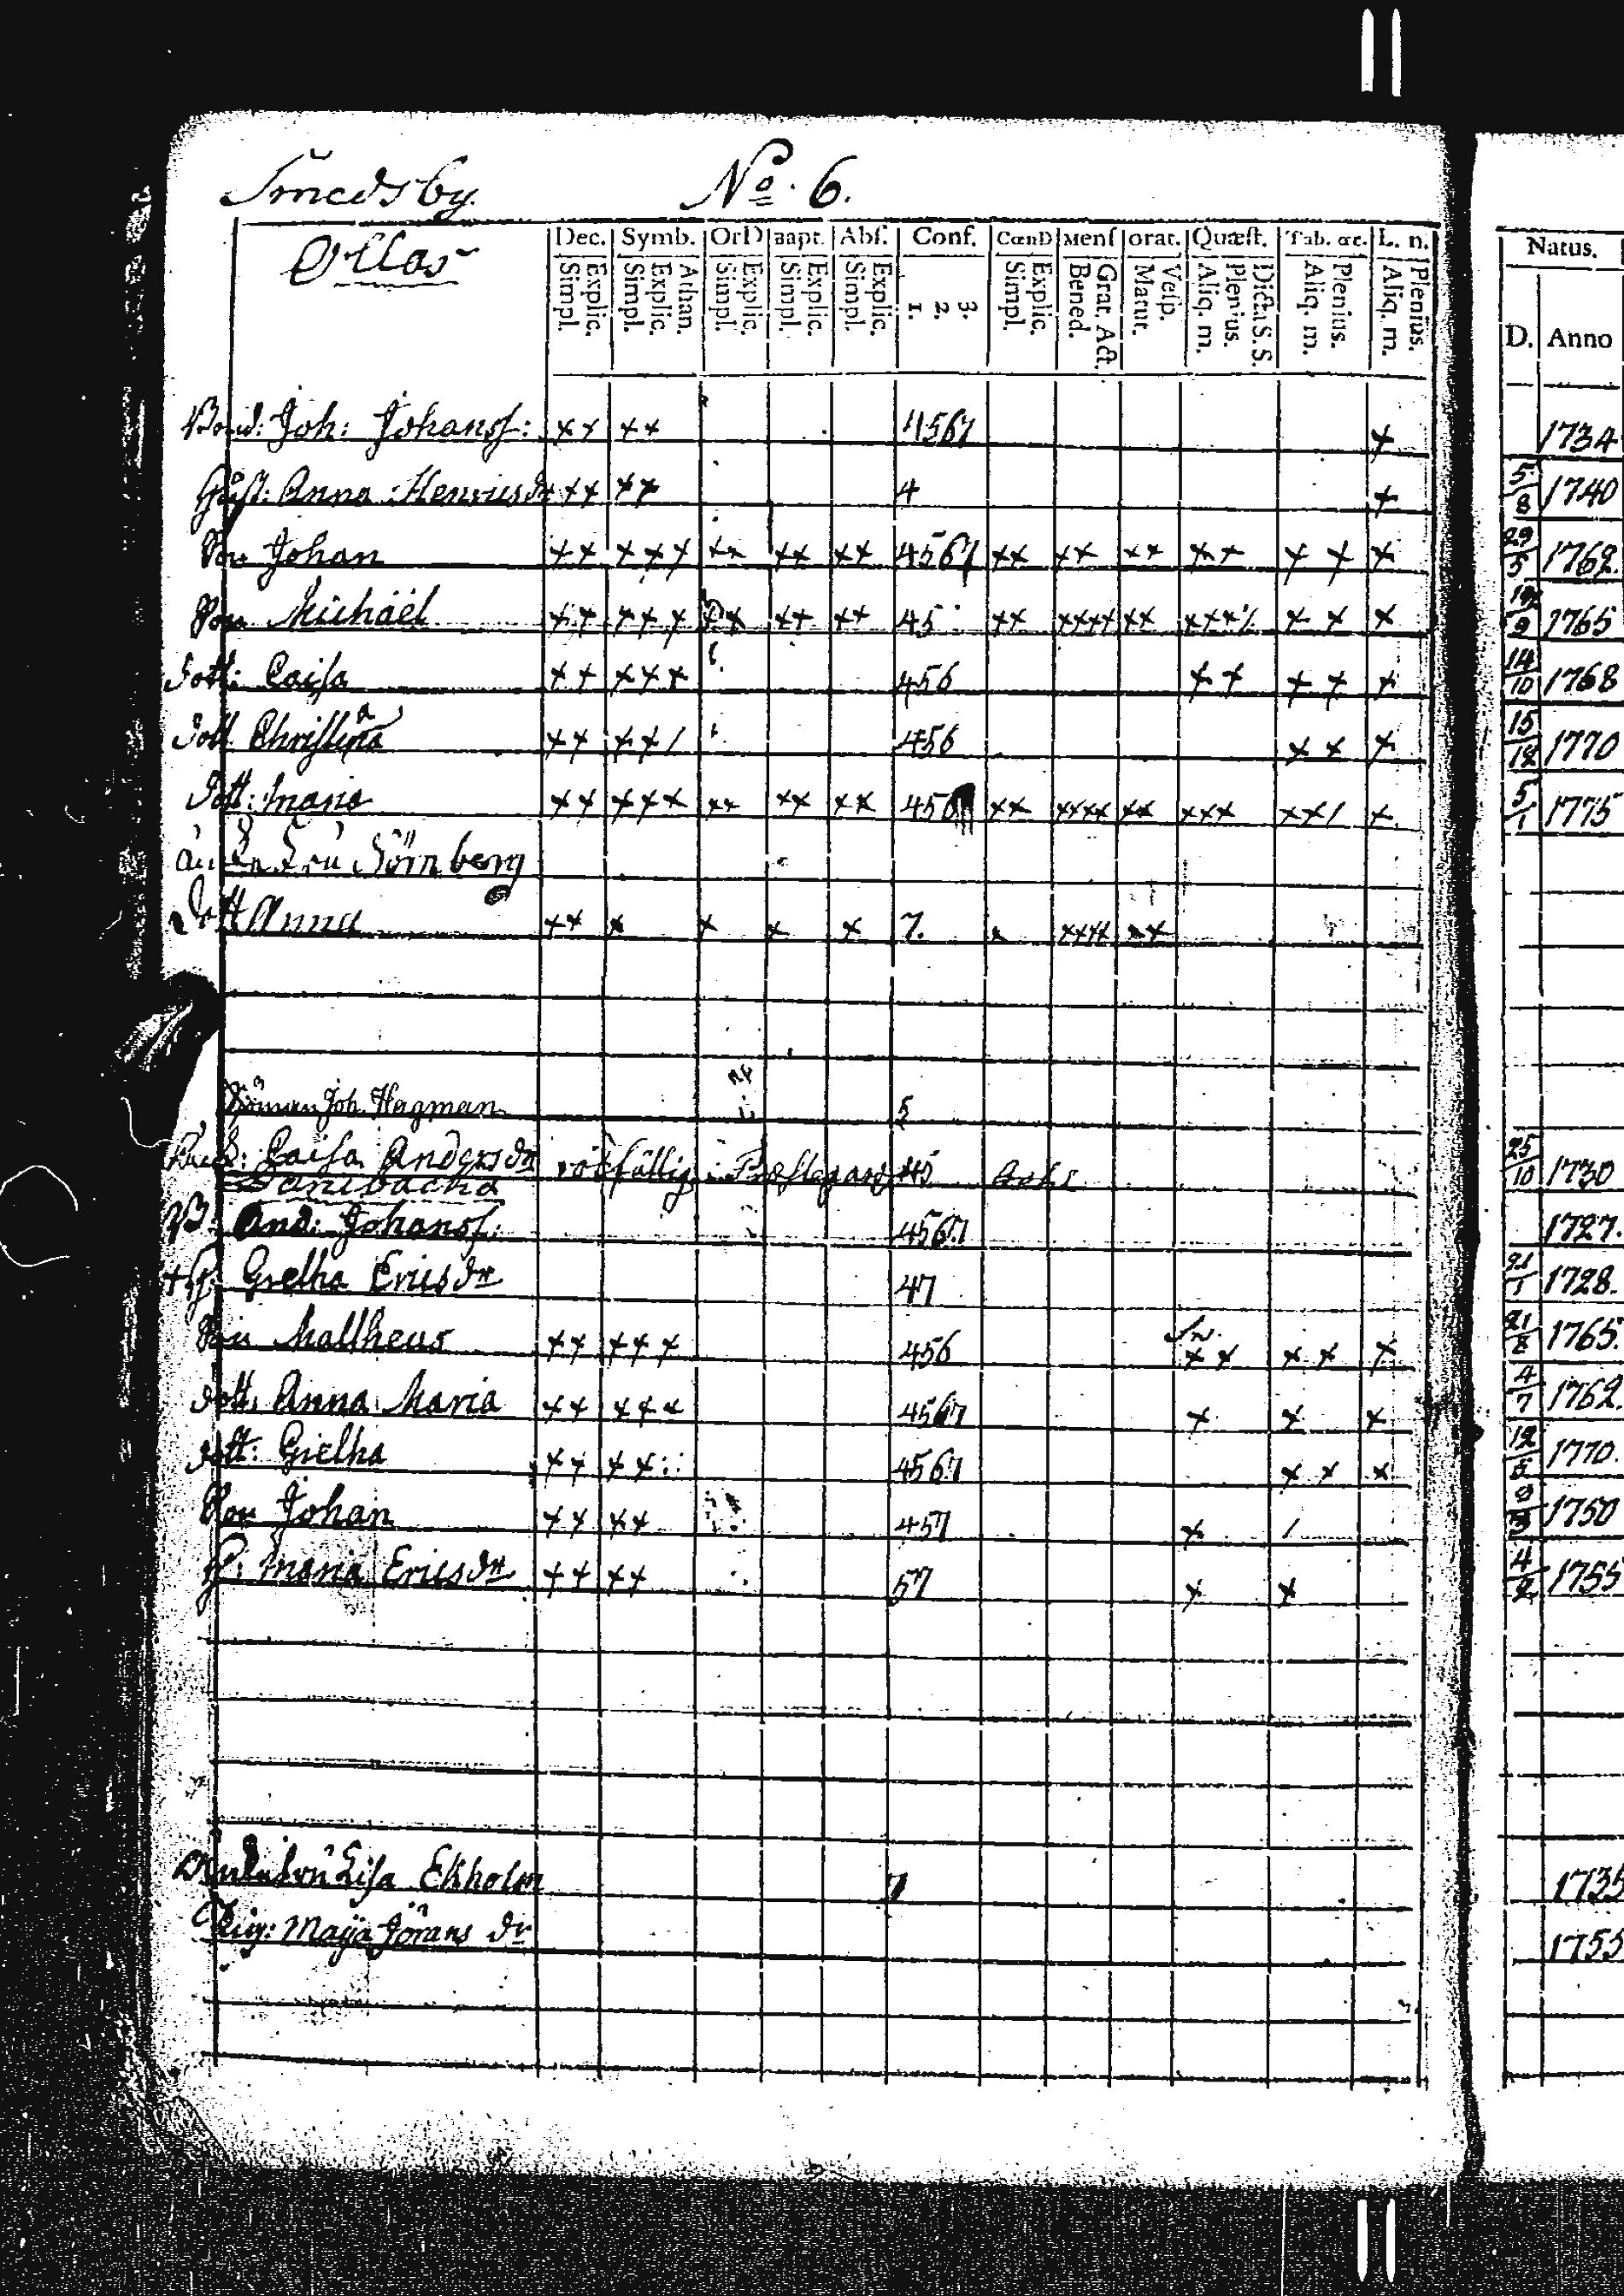 Smedsby. No. 6.
Ollas
Dec. Symb. OrD Bapt. Abſ. Conf. CœnD Menſ orat. Quæſt. Tab. œc. L. n. Natus.
Simpl. Explic. Simpl. Explic. Athan. Simpl. Explic. Simpl. Explic. Simpl. Explic. 1. 2. 3. Simpl. Explic. Bened. Grat. Act. Matut. Veſp. Aliq. m. Plenius. Dict. S. S. Aliq. m. Plenius. Aliq. m. Plenius. D. Anno
Bond: Joh: Johansſ: ++ ++ 4567 + 1734
Hust: Anna Henricsdr ++ ++ 4 + 5/8 1740
Son Johan ++ +++ ++ ++ ++ 4567 ++ ++ ++ ++ + + + 29/5 1762.
Son Michäel ++ +++ ++ ++ 45 ++ ++++ ++ + + + 1765
Dott: Caiſa ++ +++ 456 ++ ++ + 14/10 1768
Dott Chriſtina ++ ++/ 456 ++ + 1770
Dott: Maria ++ +++ ++ ++ ++ 456 ++ ++++ ++ +++ ++/ + 5/1 1775
Dott Anna ++ + + + + 7. + ++++ ++
Joh. Hagman 5
Caiſa Andersdr 45 25/10 1730
B: And: Johansſ: 4567 1727.
+H: Gretha Ericsdr 47 21/1 1728.
Son Mattheus ++ +++ 456 ++ ++ + 21/8 1765.
dott: Anna Maria ++ +++ 4567 + + + 4/7 1762.
dott: Gretha ++ ++ 4567 ++ + 1770.
Son Johan ++ ++ 457 + / 1750
H: Maria Ericsdr ++ ++ 57 + + 4/2 1755
Liſa Ekholm 7 1735
Maja Jörans dr 1755